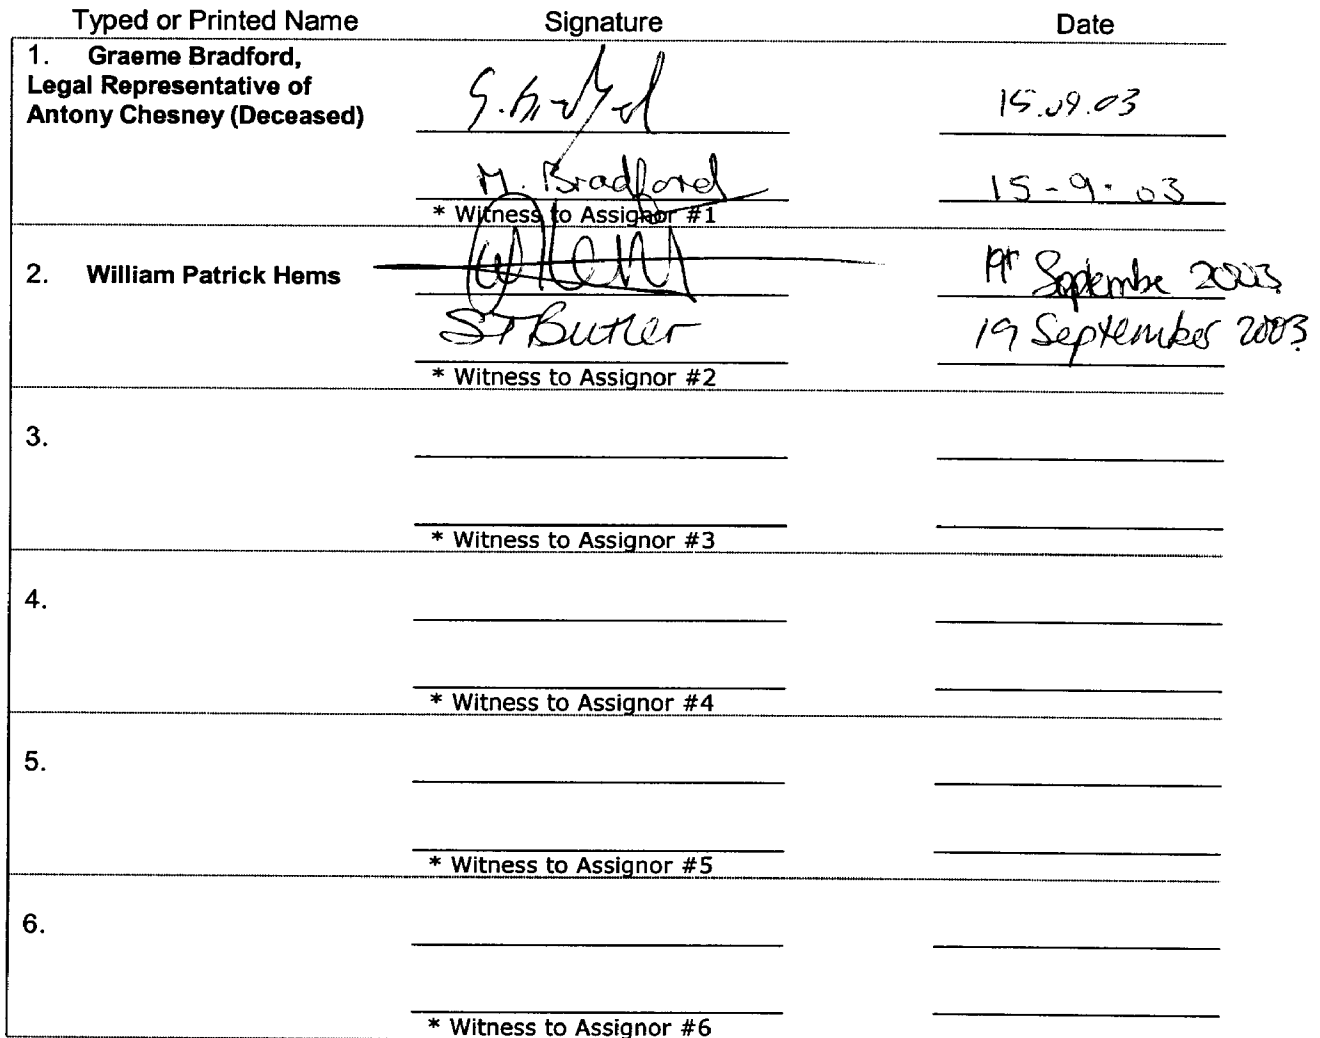 Typed or Printed Name Signature Date
1. Graeme Bradford,
Legal Representative of
Antony Chesney (Deceased)
15.09.03
M. Bradford 15-9-03
* Witness to Assignor #1
2. William Patrick Hems
Septembe 2003
ST Butler 19 September 2003
* Witness to Assignor #2
3.
* Witness to Assignor #3
4.
* Witness to Assignor #4
5.
* Witness to Assignor #5
6.
* Witness to Assignor #6